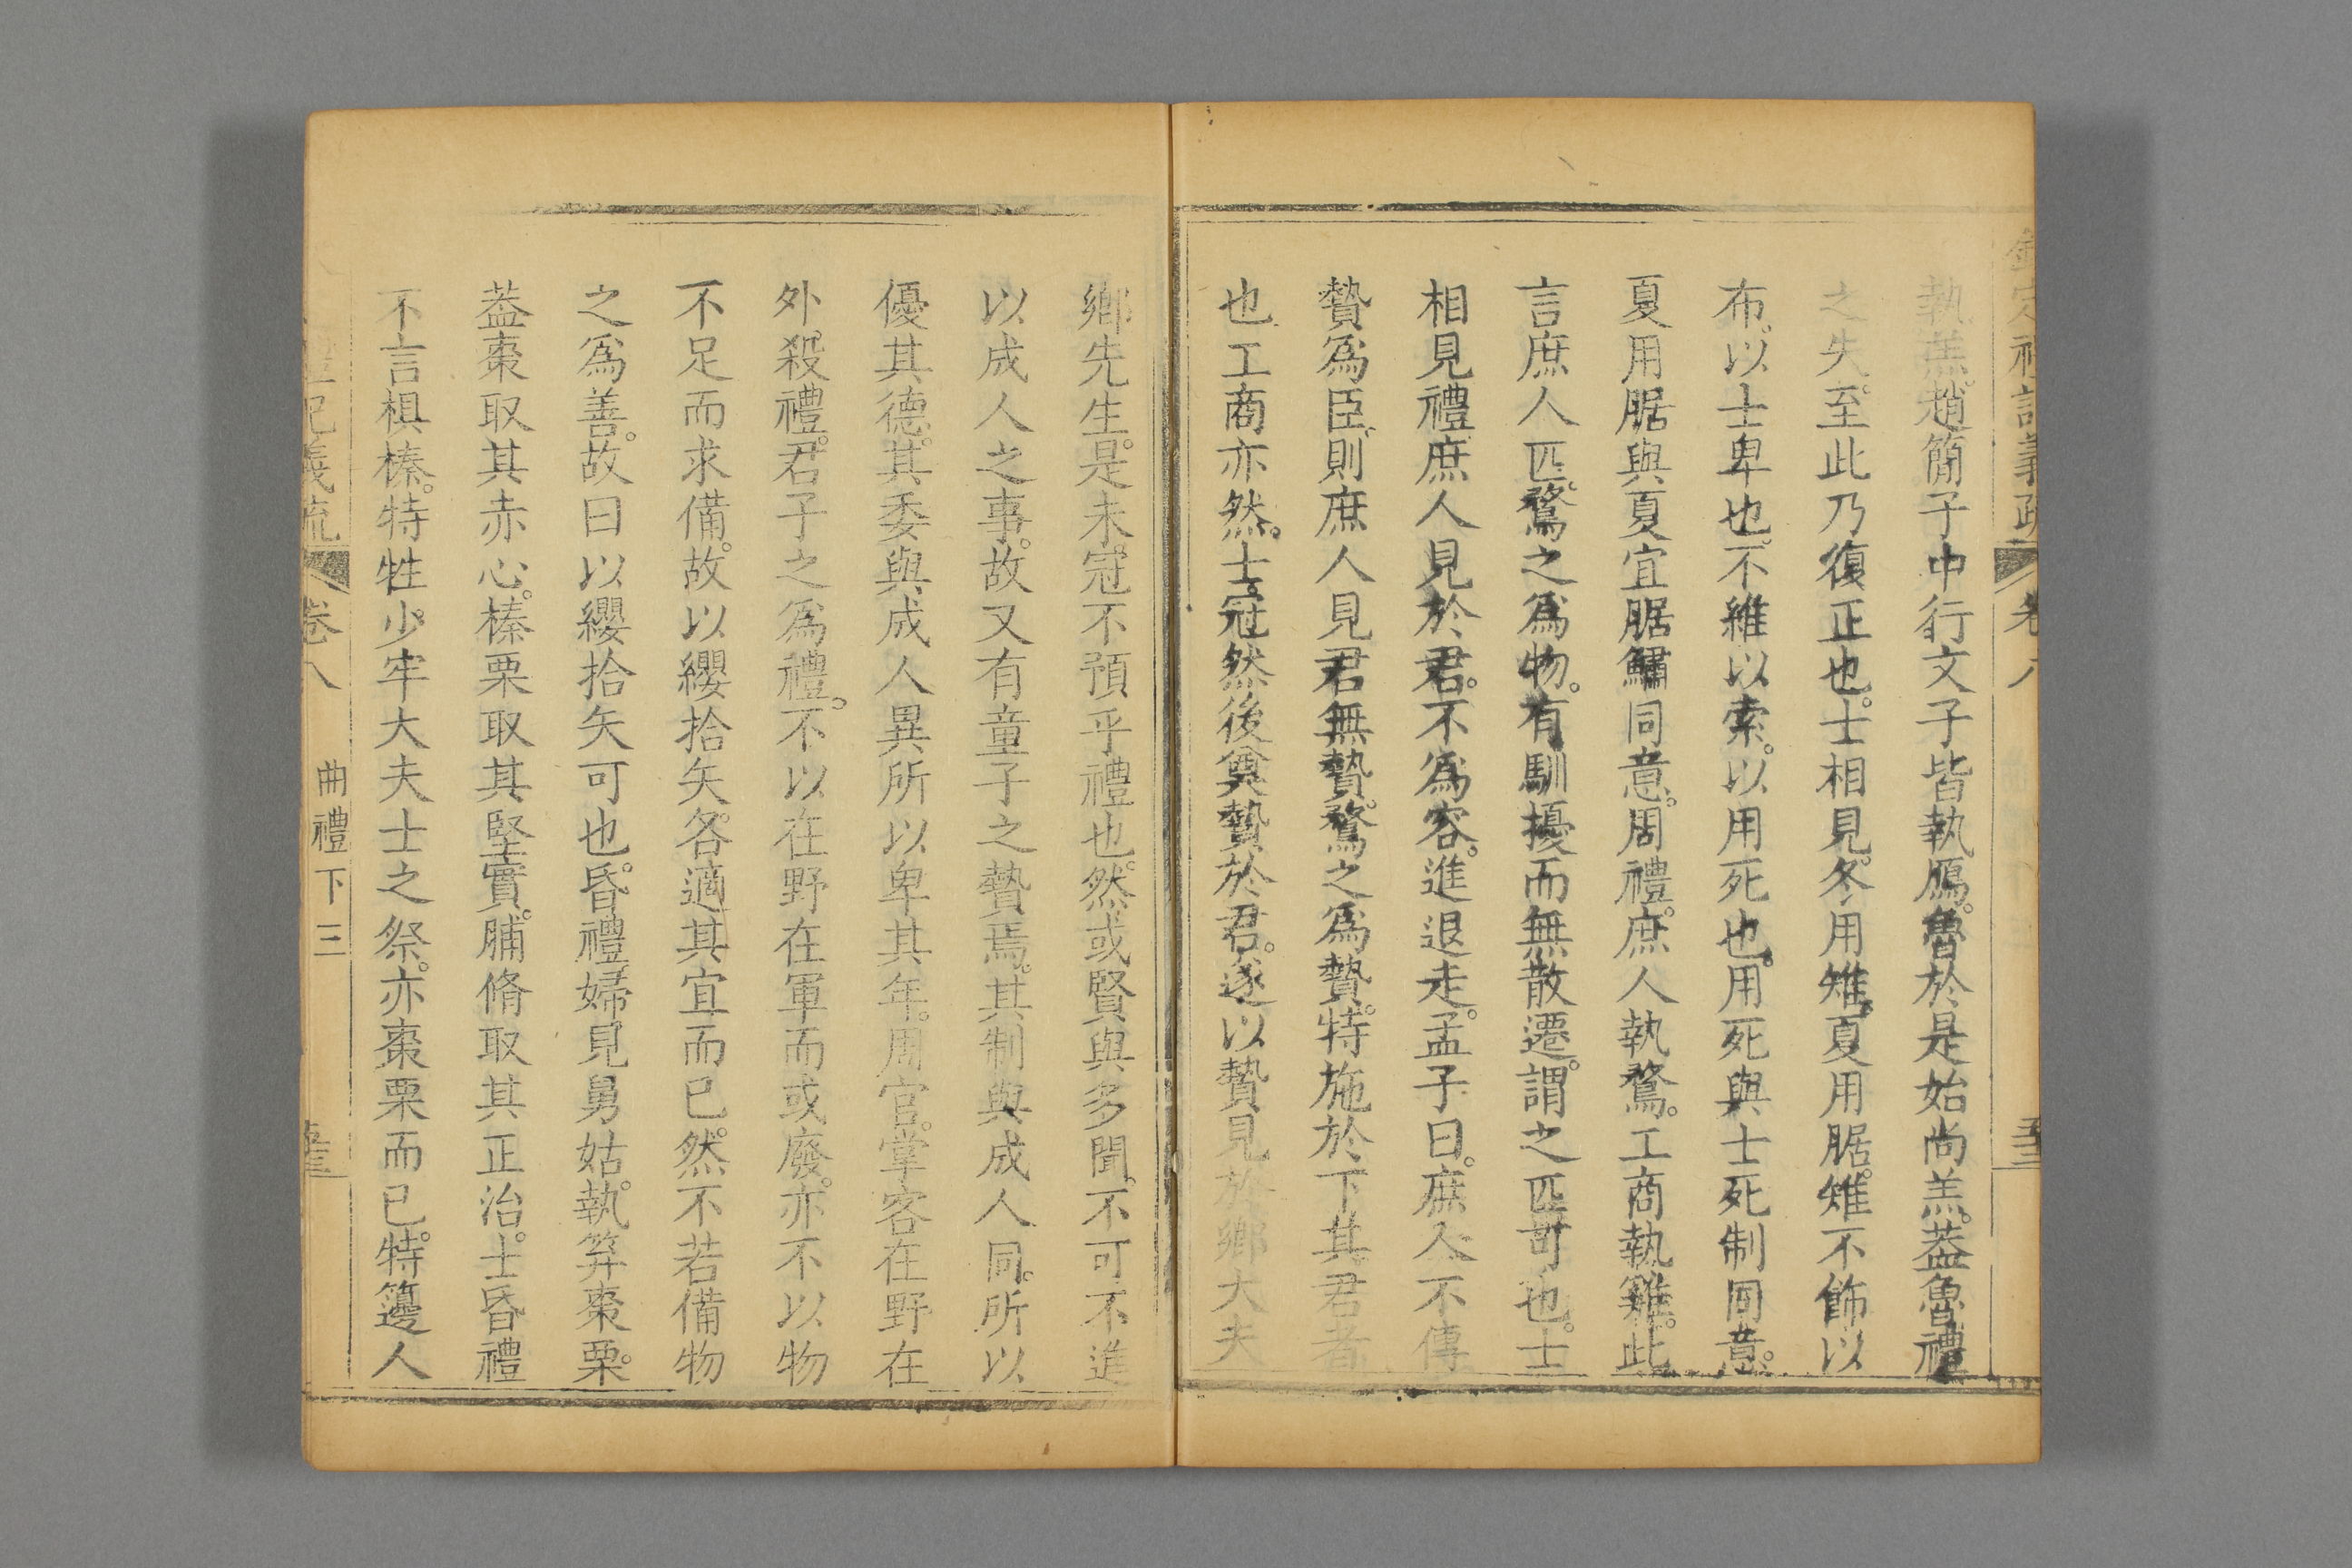 欽定禮記義疏 卷八
執羔趙簡子中行文子皆執鴈。魯於是始尚羔。葢魯禮
之失。至此乃復正也。士相見。冬用雉。夏用腒。雉不飾以
布。以士卑也。不維以索。以用死也。用死與士死制同意。
夏用腒與夏宜腒鱐同意。周禮。庶人執鶩。工商執雞。此
言庶人匹。鶩之爲物。有馴擾而無散遷。謂之匹可也。士
相見禮庶人見於君。不爲容。進退走。孟子曰。庶人不傳
贄爲臣。則庶人見君無贄。鶩之爲贄。特施於下其君者
也。工商亦然。士冠。冠然後奠贄於君。遂以贄見於鄉大夫
鄉先生。是未冠不預乎禮也。然或賢與多聞。不可不進
以成人之事。故又有童子之贄焉。其制與成人同。所以
優其德。其委與成人異所以卑其年。周官。掌客在野在
外。殺禮。君子之爲禮。不以在野在軍而或廢。亦不以物
不足而求備。故以纓拾矢。各適其宜而已。然不若備物
之爲善。故曰以纓拾矢可也。昏禮婦見舅姑。執笲棗栗。
葢棗取其赤心。榛栗取其堅實。脯脩取其正治。士昏禮
不言椇榛。特牲少牢大夫士之祭。亦棗栗而已。特籩人
禮記義疏 卷八 曲禮下三